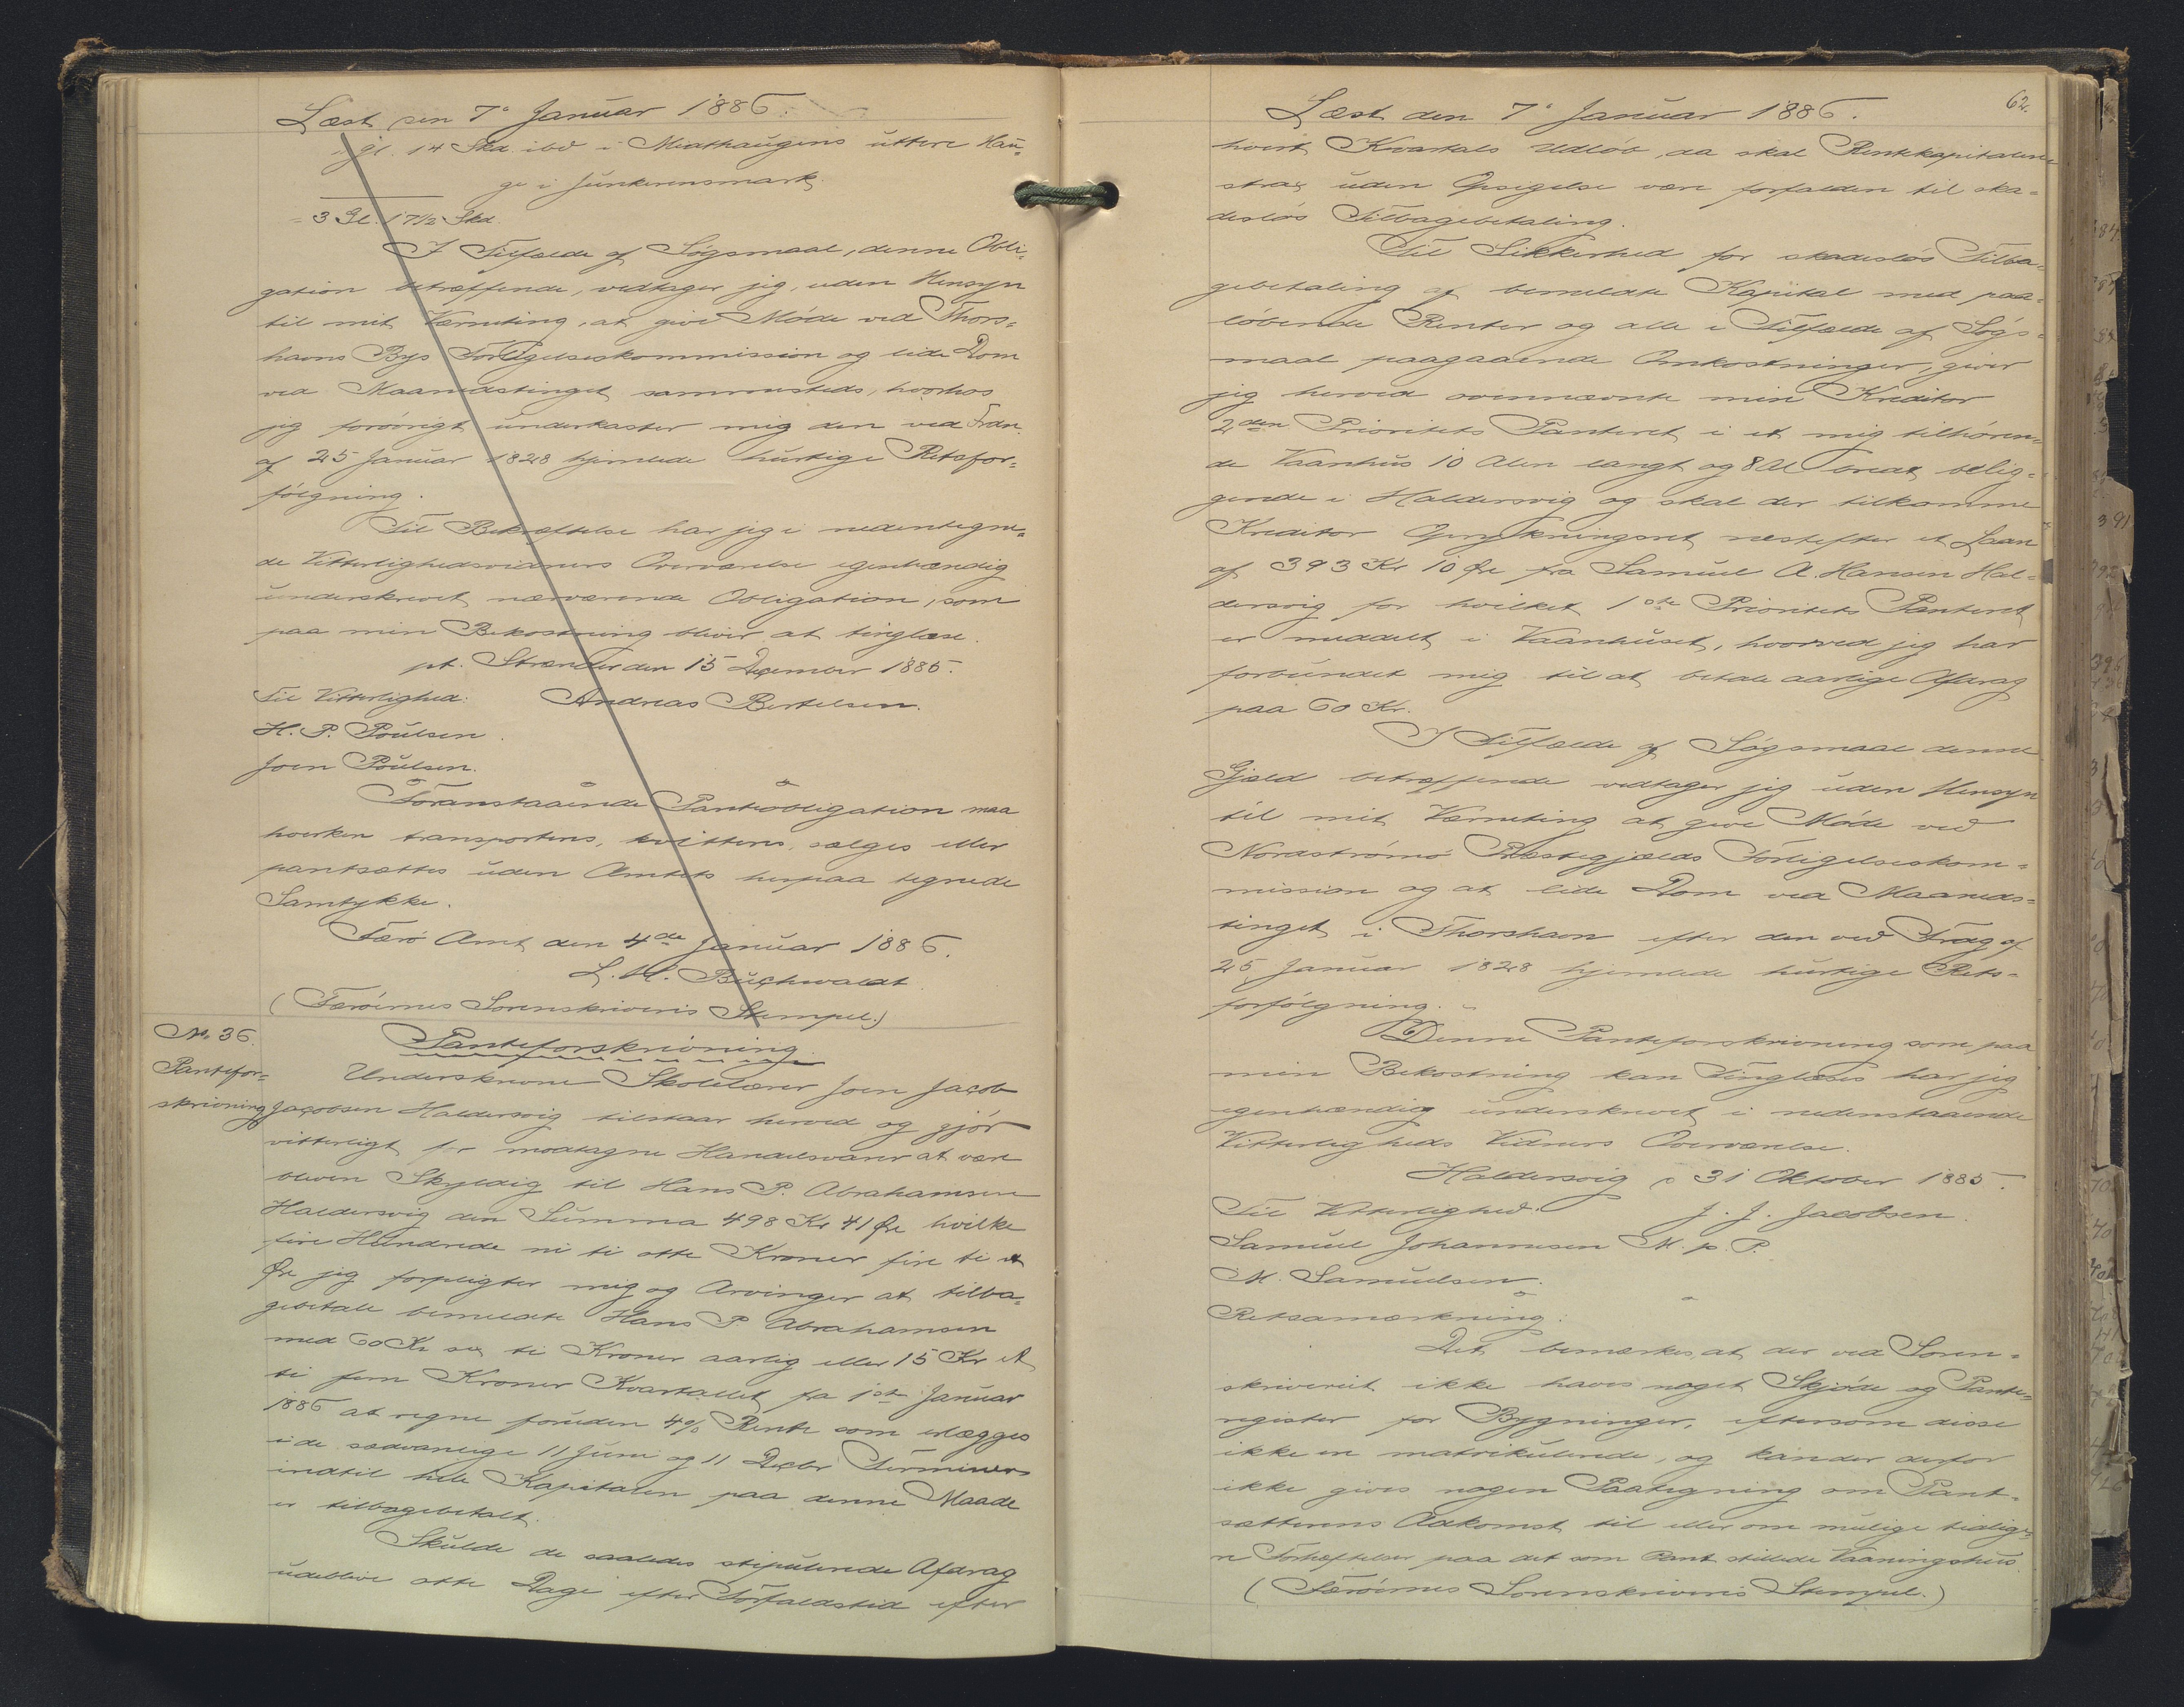 Læst den 7' Januar 1886.
gl. 14 Skd. ibd i Midthaugens uttere Hau-
ge i Junkerensmark.
= 3 Gl. 17 1/2 Skd.
I Tilfælde af Søgsmaal, denne Obli-
gation betræffende, vedtager jeg, uden Hensyn
til mit Værneting, at give Møde ved Thors-
havns Byes Forligelseskommission og lide Dom
ved Maanedstinget sammesteds, hvorhos
jeg forövrigt underkaster mig den ved Frdn.
af 25 Januar 1828 hjemlede hurtige Retsfor-
følgning.
Til Bekræftelse har jeg i nedentegne-
de Vitterlighedsvidners Overværelse egenhændig
underskrevet nærværende Obligation, som
paa min Bekostning bliver at tinglæse.
pt. Strænder den 15 December 1885.
Til Vitterlighed: Andreas Bertelsen.
H. P. Poulsen.
Joen Poulsen.
Foranstaaende Panteobligation maa
hverken transporteres, kvitteres, sælges eller
pantsættes uden Amtets herpaa tegnede
Samtykke.
Færö Amt den 4de Januar 1886.
L. Buchwaldt
(Færöernes Sorenskriveris Stempel.)
No. 36.
Pantefor-
skrivning
Panteforskrivning.
Underskrevne Skolelærer Joen Jacob
Jacobsen Haldersvig tilstaar herved og gjör
vitterligt for modtagne Handelsvarer at være
bleven Skyldig til Hans P. Abrahamsen
Haldersvig den Summa 498 Kr 41 Øre hvilke
fire Hundrede ni ti otte Kroner fire ti et
Øre jeg forpligter mig og Arvinger at tilba-
gebetale bemeldte Hans P Abrahamsen
med 60 Kr sex ti Kroner aarlig eller 15 Kr et
ti fem Kroner Kvartallet fra 1ste Januar
1886 at regne foruden 4% Rente som erlægges
i de sædvanlige 11 Juni og 11 Decbr Terminer
indtil hele Kapitalen paa denne Maade
er tilbagebetalt.
Skulde de saaledes stipulerede Afdrag
udeblive otte Dage efter Forfaldstid efter
62.
Læst den 7' Januar 1886.
hvert Kvartals Udløb, da skal Restkapitalen
strax uden Opsigelse være forfalden til ska-
desløs Tilbagebetaling.
Til Sikkerhed for skadesløs Tilba-
gebetaling af bemeldte Kapital med paa-
løbende Renter og alle i Tilfælde af Søgs-
maal paagaaende Omkostninger, giver
jeg herved ovennævnte min Kreditor
2den Prioritets Panteret i et mig tilhøren-
de Vaanhus 10 Alen langt og 8 Al bredt belig-
gende i Haldersvig og skal der tilkomme
Kreditor Oprykningsret næstefter et Laan
af 393 Kr 10 Øre fra Samuel A. Hansen Hal-
dersvig for hvilket 1ste Prioritets Panteret
er meddelt i Vaanhuset, hvorved jeg har
forbundet mig til at betale aarlige Afdrag
paa 60 Kr.
I Tilfælde af Søgsmaal denne
Gjæld betræffende vedtager jeg uden Hensyn
til mit Værneting at give Møde ved
Nordströmö Præstegjælds Forligelseskom-
mission og at lide Dom ved Maaneds-
tinget i Thorshavn efter den ved Frdg af
25 Januar 1828 hjemlede hurtige Rets-
forfölgning.
Denne Panteforskrivning som paa
min Bekostning kan Tinglæses har jeg
egenhændig underskrevet i nedenstaaende
Vitterligheds Vidners Overværelse.
Haldersvig d 31 Oktober 1885.
Til Vitterlighed: J. J. Jacobsen.
Samuel Johannesen M. p. P.
M. Samuelsen.
Retsanmærkning:
Det bemærkes, at der ved Soren-
skriveriet ikke haves noget Skjöde og Pante-
register for Bygninger, eftersom disse
ikke er matrikulerede, og kan der derfor
ikke gives nogen Paategning om Pant-
sætterens Adkomst til eller om mulige tidlige-
re Forhæftelser paa det som Pant stillede Vaaningshus.
(Færöernes Sorenskriveris Stempel.)